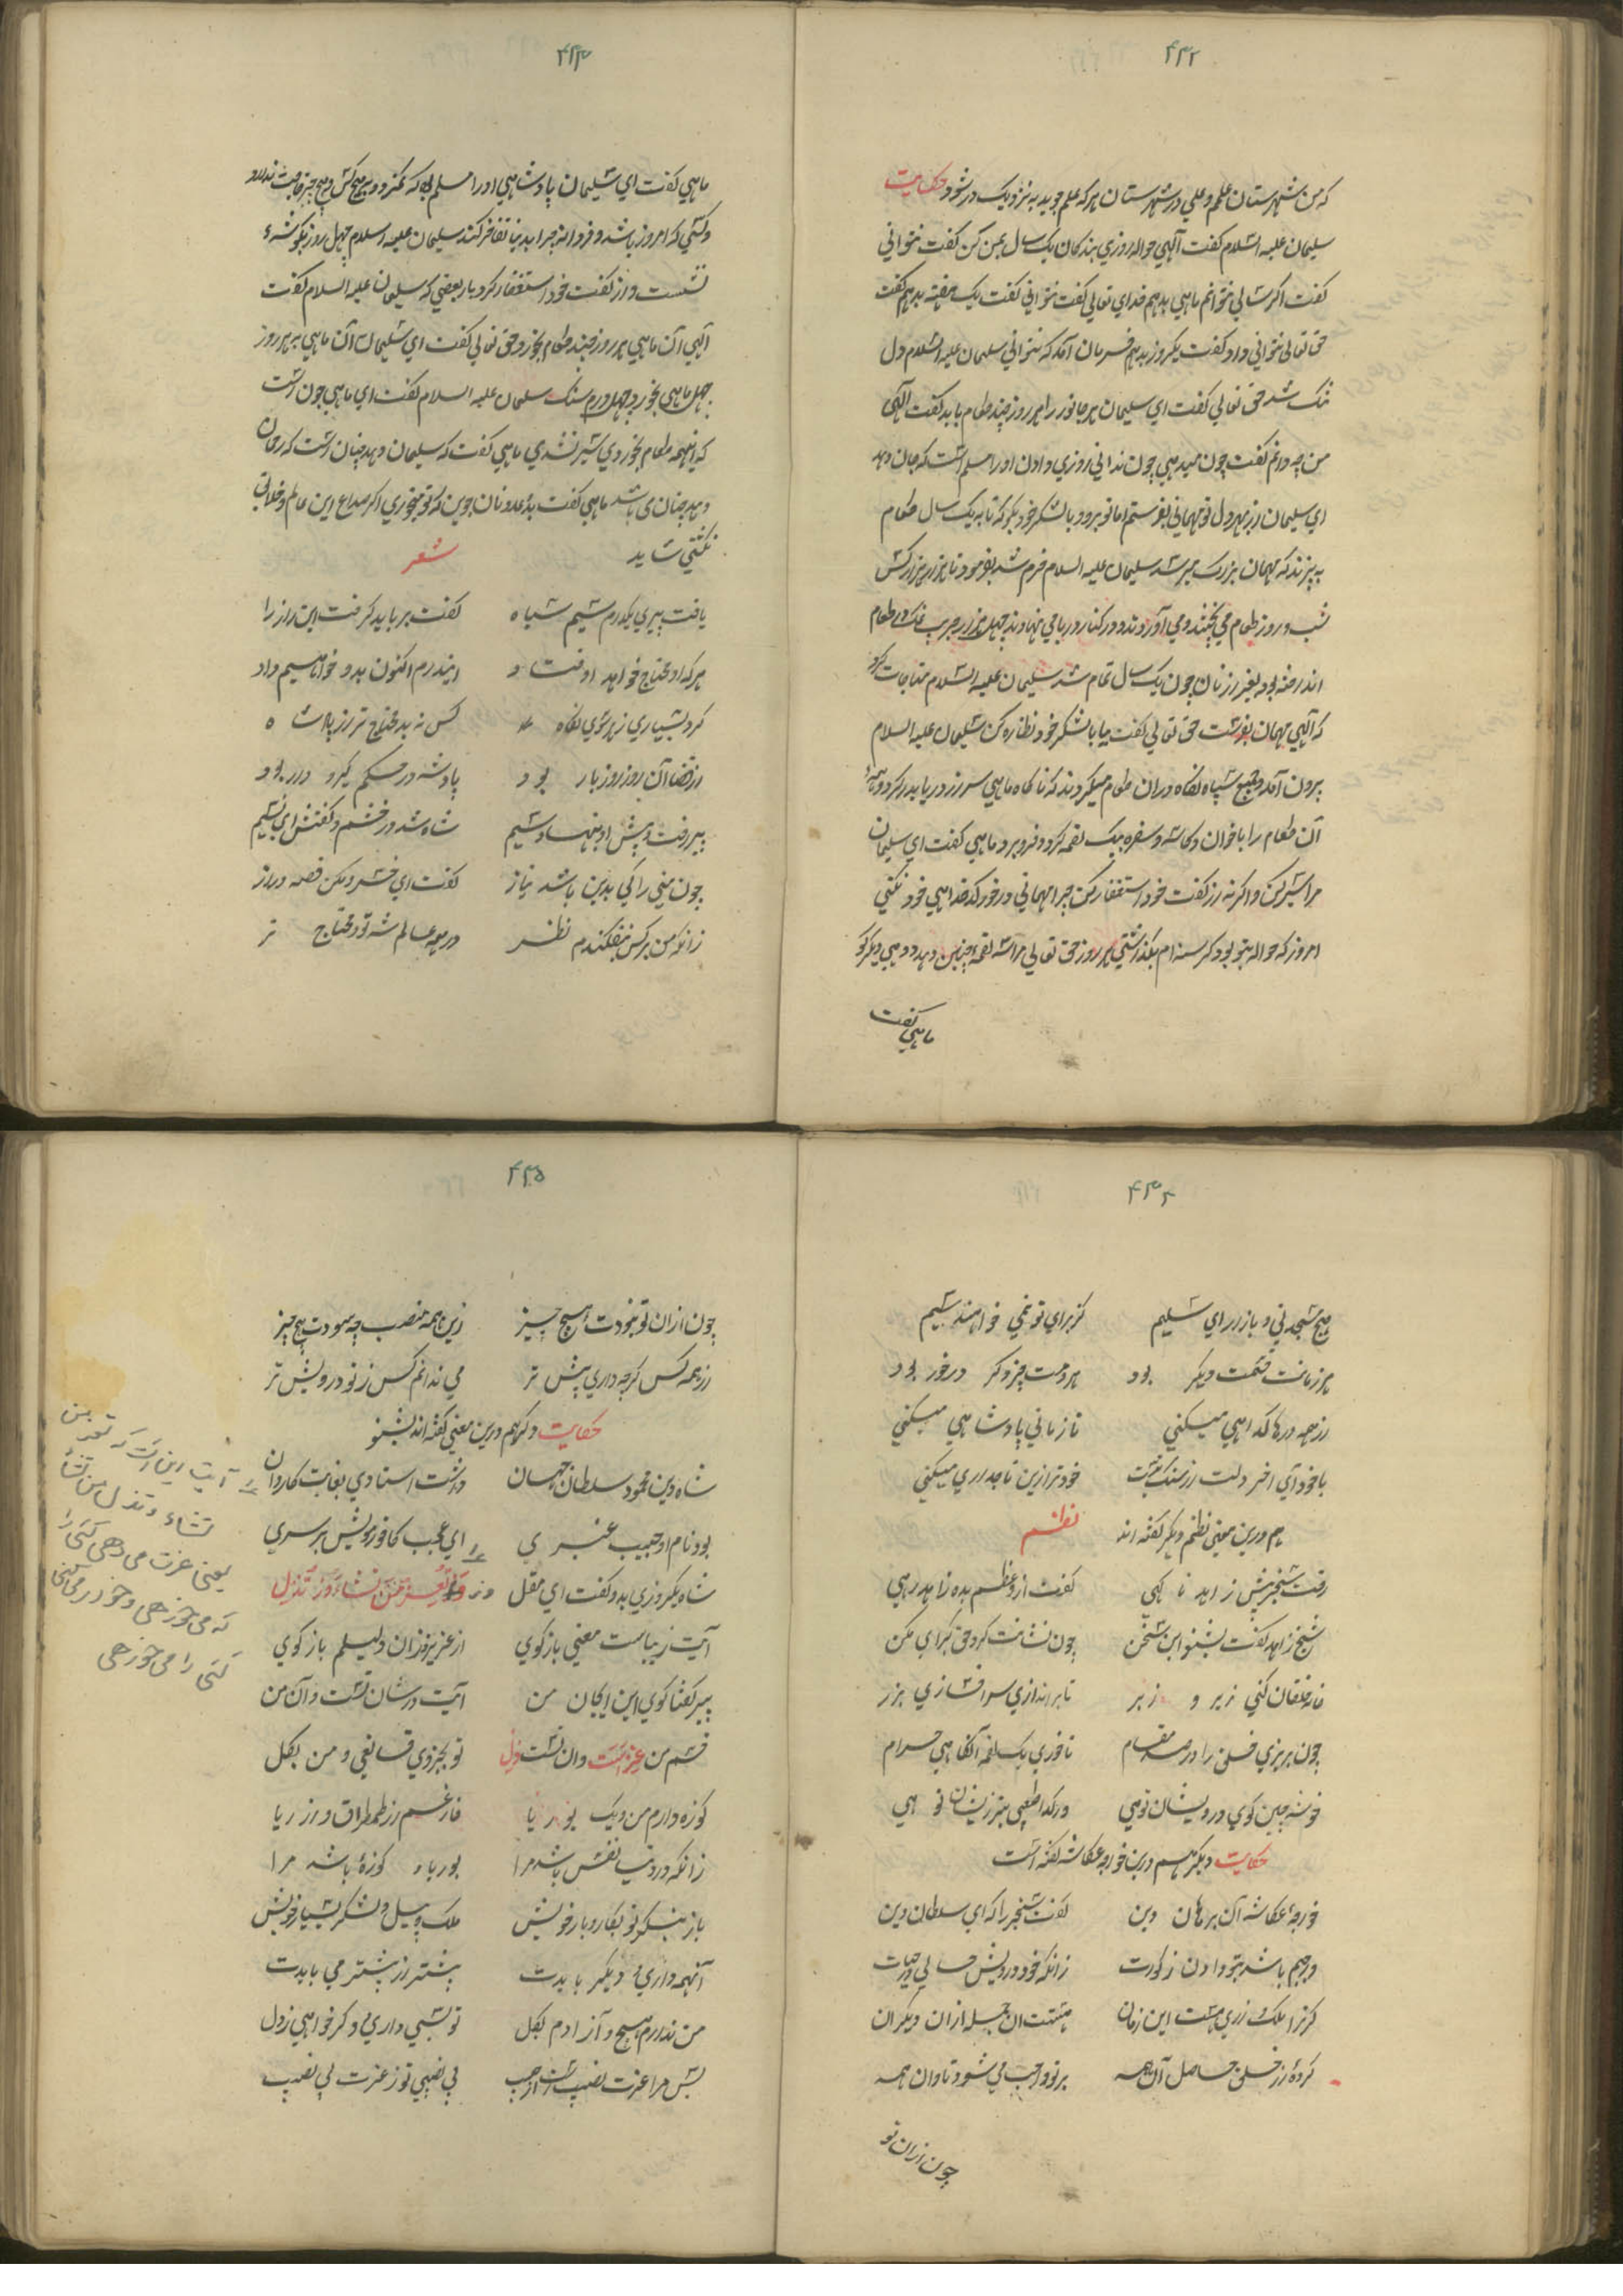 ۴۳۲
که من شهرستان علم و علی در شهرستان هر که علم جوید به نزدیک در شود حکایت
سلیمان علیه السلام گفت آلهی حواله روزی بندگان یک سال بمن کن گفت نتوانی
گفت اگر سالی نتوانم ماهی بدهم خدای تعالی گفت نتوانی گفت یک هفته بدهم گفت
حق تعالی نتوانی داد گفت یکروز بدهم فرمان آمد که نتوانی سلیمان علیه السلام دل
تنک شد حق تعالی گفت ای سلیمان هر جانور را هر روز چند طعام باید گفت آلهی
من چه دانم گفت چون میدهی چون ندانی روزی دادن او را مسلم است که جان دهد
ای سلیمان از بهر دل تو مهمانی بفرستم اما تو برو و با لشکر خود بگو که تا به یک سال طعام
به پزند که مهمان بزرگ میرسد سلیمان علیه السلام خرم شد بفرمود تا هزار هزار کس
شب و روز طعام می پختند و می آوردند و در کنار دریا می نهادند چهل هزار جریب نمک در طعام
انداخته بود بغیر از نان چون یک سال تمام شد سلیمان علیه السلام مناجات کرد
که آلهی مهمان بفرست حق تعالی گفت بیا با لشکر خود نظاره کن سلیمان علیه السلام
برون آمد و جمیع سپاه نگاه دران طعام میکردند که ناگاه ماهی سر از دریا بدر کرد و همه
آن طعام را با خوان و کاسه و سفره بیک لقمه کرد و فرو برد ماهی گفت ای سلیمان
مرا سیر کن و اگر نه از گفت خود استغفار کن چرا مهمانی در خور کدخداهی خود نکنی
امروز که حواله بتو بود گرسنه ام بگذاشتی هر روز حق تعالی مرا سه لقمه چنین دهد دو دهی دیگر کو
ماهی گفت
۴۳۳
ماهی گفت ای سلیمان پادشاهی او را مسلم بود که نمیرد و بهیچ کس و هیچ چیز حاجت ندارد
و کسی که امروز باشد و فردا نه چرا بدنیا تفاخر کند سلیمان علیه السلام چهل روز بگوشهٔ
نشست و از گفت خود استغفار کرد باز بعضی که سلیمان علیه السلام گفت
آلهی آن ماهی هر روز چند طعام بخورد حق تعالی گفت ای سلیمان آن ماهی هر روز
چهل ماهی بخورد چهل درم سنک سلیمان علیه السلام گفت ای ماهی چون است
که اینهمه طعام بخوردی سیر نشدی ماهی گفت که سلیمان دهد چنان است که رحمان
دهد چنان می باشد ماهی گفت بدو نان جوین که تو میخوری اگر صداع این عالم و خلایق
نکشی شاید شعر
یافت پیری یکدرم سیم سیاه گفت بر باید گرفت این راز را
هر که او محتاج خواهد اوفتاد ایندرم اکنون بدو خواهیم داد
کرد بسیاری ز هر سوی نگاه کس نه بد محتاج تر از پادشاه
از قضا آن روز روز بار بود پادشه در حکم گیر و دار بود
پیر رفت و پیش او بنهاد سیم شاه شد در خشم و گفتش ای لئیم
چون منی را کی بدین باشد نیاز گفت ای خسرو مکن قصه دراز
زانکه من بر کس نیفکندم نظر در همه عالم ز تو محتاج تر
۴۳۴
هیچ مسجد نی و بازار ای سلیم کز برای تو نمی خواهند سیم
هر زمانت قسمت دیگر بود هر دمت چیز دگر در خور بود
از همه درها گداهی میکنی تا زمانی پادشاهی میکنی
با خود آی آخر دلت از سنگ نیست خود ترا زین تاجداری میکنی
هم درین معنی نظم دیگر گفته اند نظم
رفت سنجر پیش زاهد ناگهی گفت از وعظم بده زاهد رهی
شیخ زاهد گفت بشنو این سخن چون شبانت کرد حق گرگی مکن
خانه خلقان کنی زیر و زبر تا براندازی سرافسازی بزر
چون بریزی خلق را در صد مقام تا خوری یک لقمه آنگاهی حرام
خوشه چین کوی درویشان توهی در گدا طبعی بتر زیشان توهی
حکایت دیگر هم درین خواجه عکاشه گفته است
خواجهٔ عکاشه آن برهان دین گفت سنجر را که ای سلطان دین
واجبم باشد بتو دادن زکوت زانکه خود درویش حالی در حیات
گر ترا ملک و زری هست این زمان هستت ان جمله ازان دیگران
کردهٔ از خلق حاصل آن همه بر تو واجب می شود تاوان همه
چون ازان تو
۴۳۵
چون ازان تو نبودت هیچ چیز زین همه منصب چه سودت هیچ چیز
از همه کس گرچه داری بیش تر می ندانم کس ز تو درویش تر
حکایت دگر هم درین معنی گفته اند بشنو
شاه دین محمود سلطان جهان داشت استادی بغایت کاردان
بود نام او حبیب عنبری ای عجب کافور مویش بر سری
شاه یکروزی بدو گفت ای مقل وز وتعز من تشاء وز تذل
آیت زیباست معنی بازگوی از عزیز و زان ذلیلم بازگوی
پیر گفتا کوی این ای جان من آیت در شان تست و آن من
قسم من عز است وان تست ذل تو بجزوی قانعی و من بکل
کوزه دارم من و یک بوریا فارغم از طمطراق و از ریا
زانکه در دنیا نفس باشد مرا بوریا و کوزهٔ باشد مرا
باز بنگر تو بکار و بار خویش ملک و پیل و لشکر بسیار خویش
آنهمه داری و دیگر بایدت بیشتر از بیشتر می بایدت
من ندارم هیچ و آزادم بکل تو بسی داری و گر خواهی ز دل
پس مرا عزت نصیب است از حبیب بی نصیبی تو ز عزت بی نصیب
آیت این است که تعز من
تشاء و تذل من تشاء
یعنی عزت می دهی کسی را
که می خواهی و خوار می کنی
کسی را می خواهی